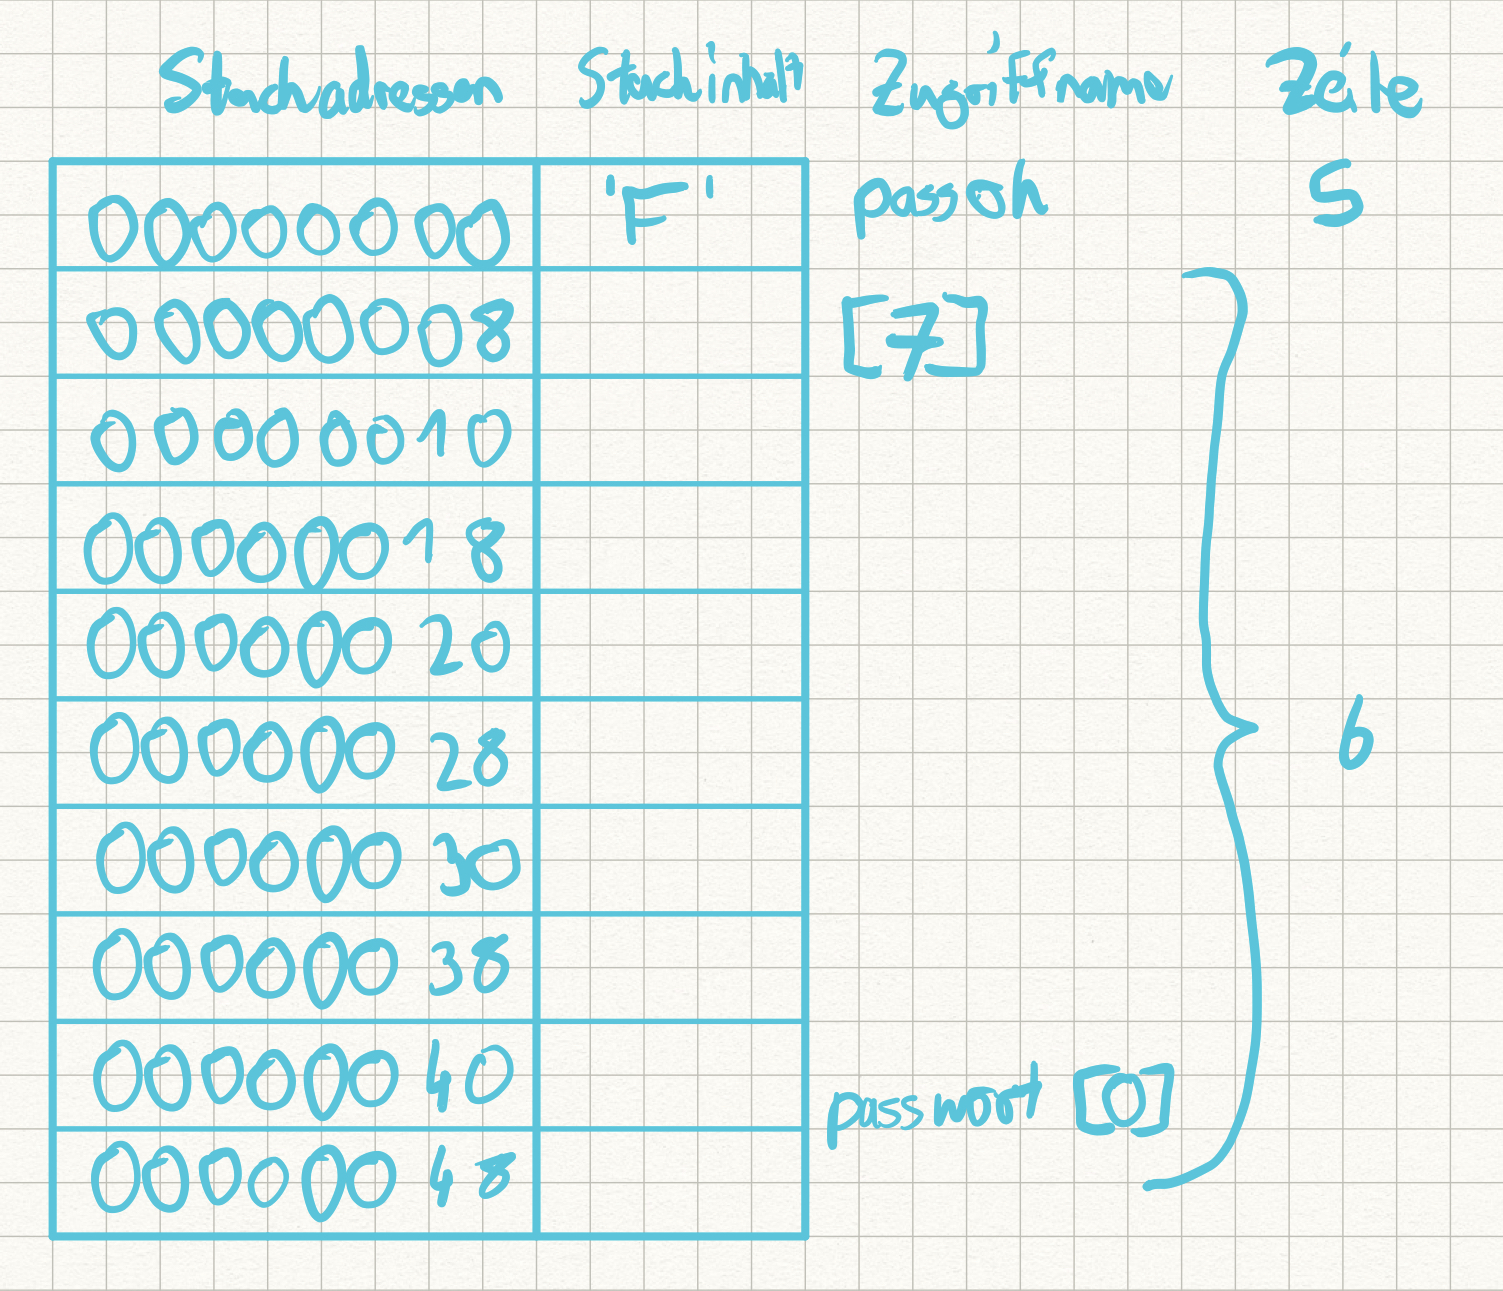 Stackadressen Stackinhalt Zugriffname Zeile
00000000 'F' passOk 5
00000008 [7]
00000010
00000018
00000020
00000028 6
00000030
00000038
00000040 passwort [0]
00000048